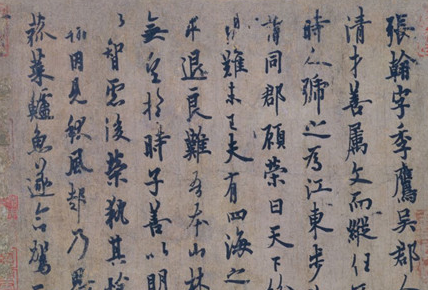 張翰字季鷹吳郡人
清才善屬文而縱任
時人號之為江東步
謂同郡顧榮曰天下
難未已夫有四海之
求退良難吾本山林
無望於時子善以明
智慮後榮執其愴
翰因見秋風起乃思
菰菜鱸魚遂命駕